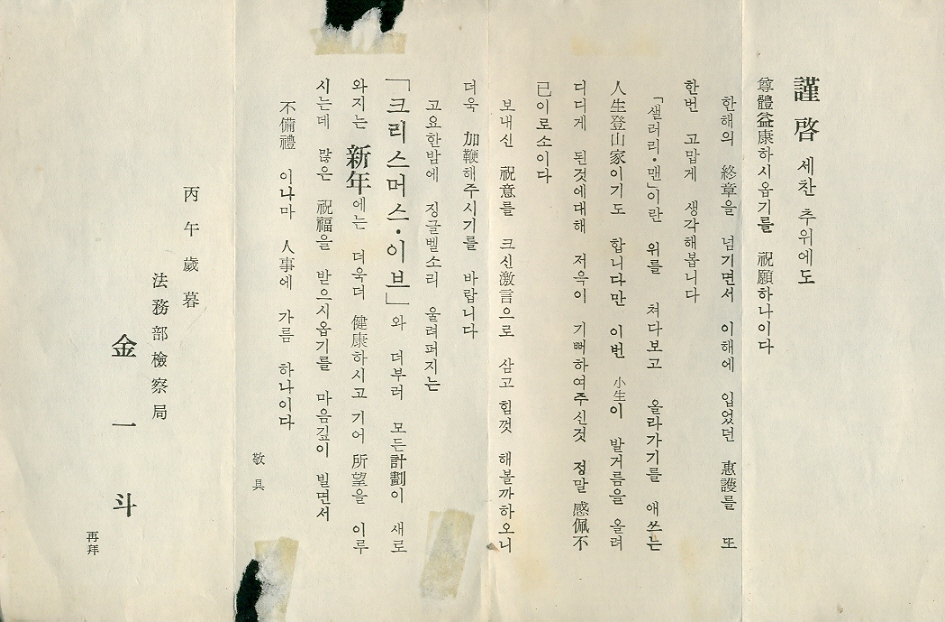 謹啓 세찬 추위에도
尊體益康하시옵기를 祝願하나이다
한해의 終章을 넘기면서 이해에 입었던 惠護를 또
한번 고맙게 생각해봅니다
「샐러리·맨」이란 위를 쳐다보고 올라가기를 애쓰는
人生登山家이기도 합니다만 이번 小生이 발거름을 올려
디디게 된것에대해 저윽이 기뻐하여주신것 정말 感佩不
已이로소이다
보내신 祝意를 크신激言으로 삼고 힘껏 해볼까하오니
더욱 加鞭해주시기를 바랍니다
고요한밤에 징글벨소리 울려퍼지는
「크리스머스·이브」와 더부러 모든計劃이 새로
와지는 新年에는 더욱더 健康하시고 기어 所望을 이루
시는데 많은 祝福을 받으시옵기를 마음깊이 빌면서
不備禮 이나마 人事에 가름 하나이다
敬具
丙午歲暮
法務部檢察局
金一斗
再拜